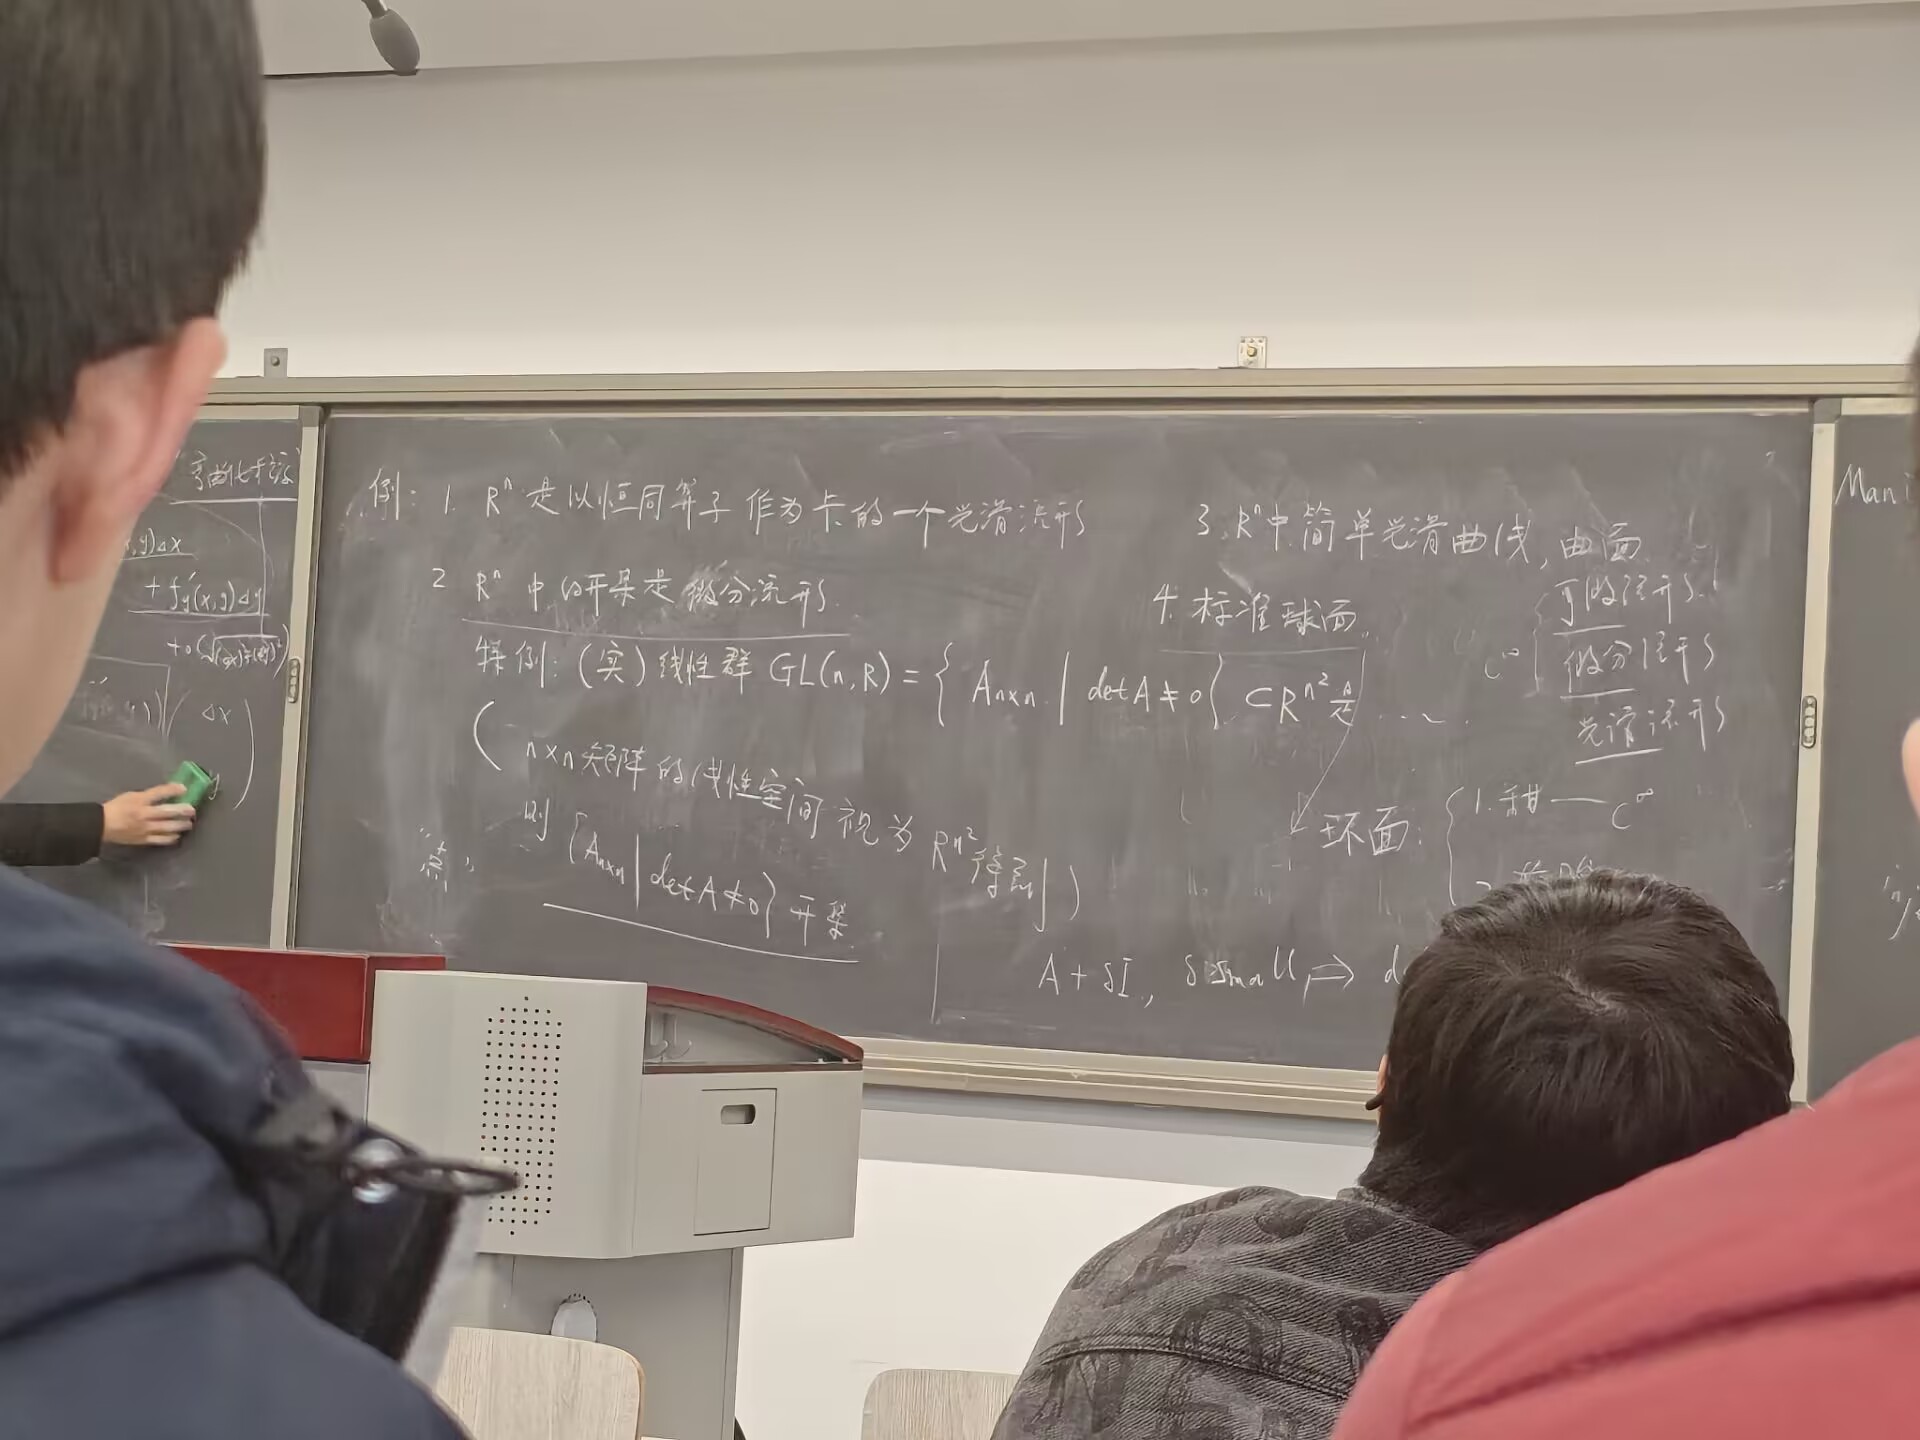 "弯曲化手续"
x,y)Δx
+ fy'(x,y)Δy
+o(√(Δx)²+(Δy)²)
Δx
y
例: 1. Rⁿ 是以恒同算子作为卡的一个光滑流形
2 Rⁿ 中的开集是微分流形.
特例: (实) 线性群 GL(n,R) = { Anxn | detA ≠ 0 } ⊂ R^n² 是 ...
( n×n 矩阵的线性空间视为 R^n²
则 {Anxn | detA ≠ 0} 开集 )
"点"
3. Rⁿ中简单光滑曲线, 曲面
4. 标准球面
C^∞ { 可微流形
微分流形
光滑流形
环面: { 1. 甜一 C^∞
2.
A + δI, δ small, ⇒ d
Mani